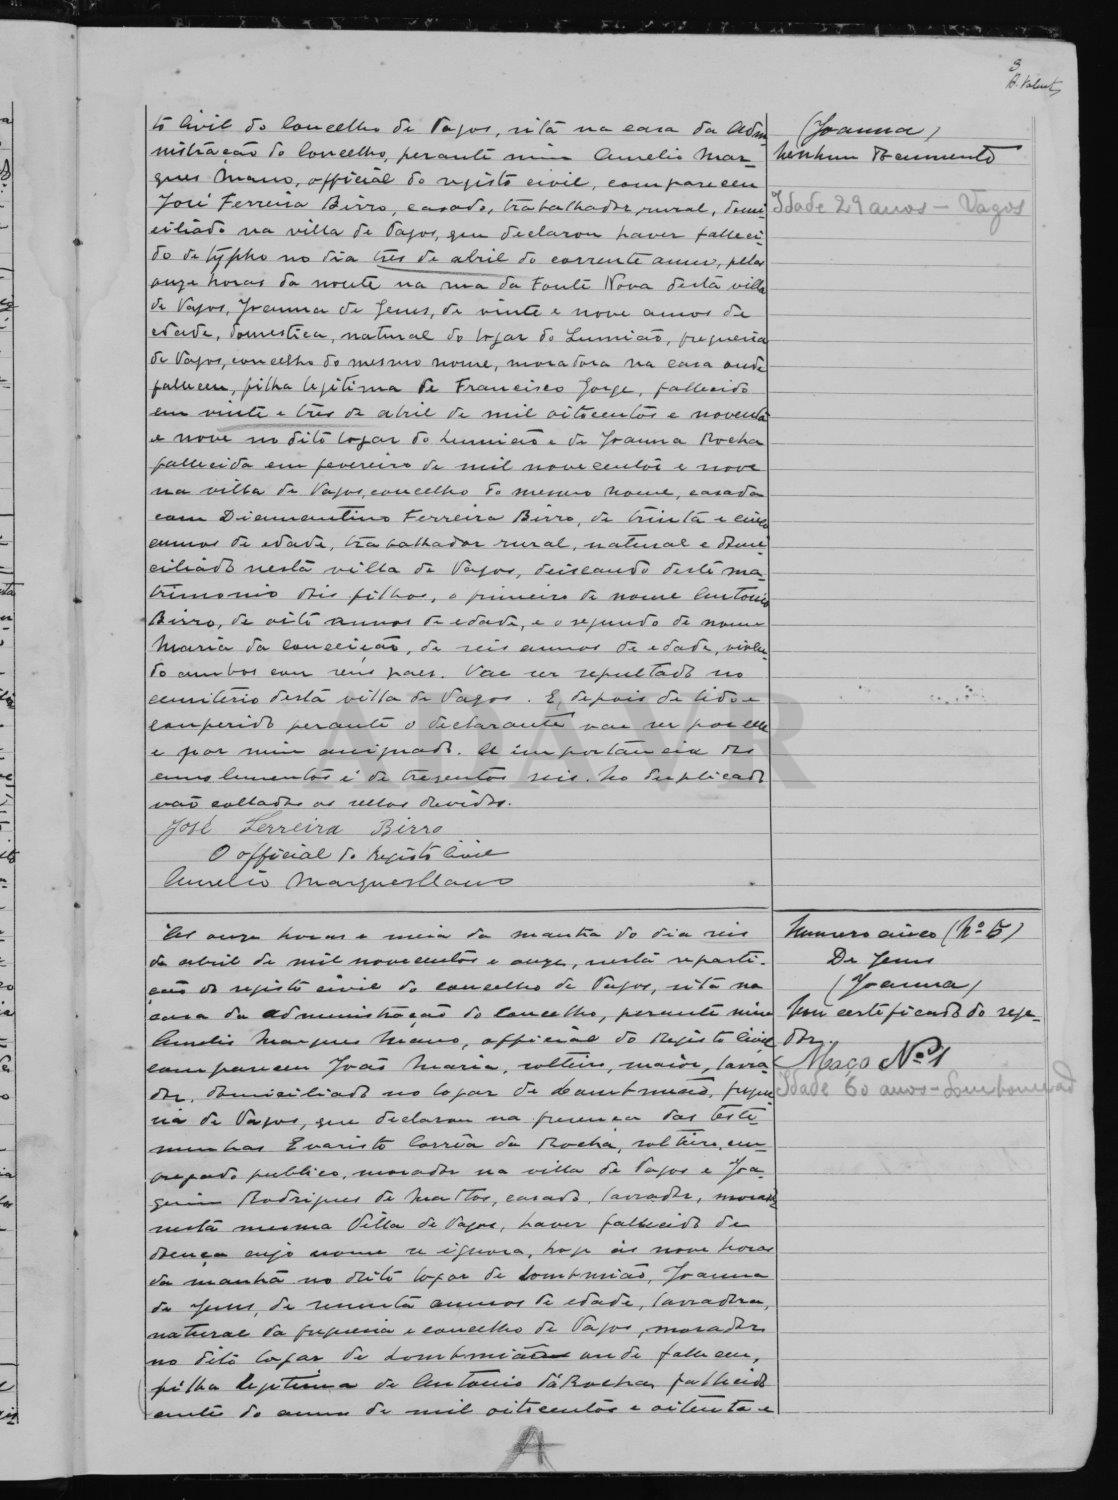 3
A. Valente
to Civil do Concelho de Vagos, sitá na casa da Adm
nistração do Concelho, perante mim Aurelio Mar-
ques Mano, official do registo civil, compareceu
José Ferreira Birro, casado, trabalhador rural, domi-
ciliado na villa de Vagos, que declarou haver falleci-
do de typho no dia três de abril do corrente anno, pelas
onze horas da noute na rua da Fonte Nova desta villa
de Vagos, Joanna de Jesus, de vinte e nove annos de
edade, domestica, natural do logar do Lumião, freguesia
de Vagos, concelho do mesmo nome, moradora na casa onde
falleceu, filha legitima de Francisco Jorge, fallecido
em vinte e três de abril de mil oitocentos e noventa
e nove no dito logar do Lumião e de Joanna Rocha
fallecida em fevereiro de mil novecentos e nove
na villa de Vagos, concelho do mesmo nome, casada
com Diamantino Ferreira Birro, de trinta e cinco
annos de edade, trabalhador rural, natural e domi
ciliado nesta villa de Vagos, deixando deste ma-
trimonio dois filhos, o primeiro de nome Antonio
Birro, de oito annos de edade, e o segundo de nome
Maria da Conceição, de seis annos de edade, viven-
do ambos com seus paes. Vae ser sepultado no
cemiterio desta villa de Vagos. E, depois de lido e
conferido perante o declarante vae ser por elle
e por mim assignado. A importancia dos
emolumentos é de tresentos reis. No duplicado
vão collados os sellos devidos.
José Ferreira Birro
O official do Registo Civil
Aurelio Marques Mano
(Joanna)
Nenhum documento
Idade 29 anos - Vagos
Às onze horas e meia da manhã do dia seis
de abril de mil novecentos e onze, nesta reparti-
ção do registo civil do concelho de Vagos, sitá na
casa da administração do Concelho, perante mim
Aurelio Marques Mano, official do Registo Civil
compareceu João Maria, solteiro, maior, lavra-
dor, domiciliado no logar de Lombomeão, fregue-
sia de Vagos, que declarou na presença das teste-
munhas Evaristo Corrêa da Rocha, solteiro, em-
pregado publico, morador na villa de Vagos e Joa-
quim Rodrigues de Mattos, casado, lavrador, morador
nesta mesma Villa de Vagos, haver fallecido de
doença cujo nome se ignora, hoje ás nove horas
da manhã no dito logar de Lombomião, Joanna
de Jesus, de sessenta annos de edade, lavradora,
natural da freguesia e concelho de Vagos, moradora
no dito logar de Lombomião onde falleceu,
filha legitima de Antonio da Rocha, fallecido
antes do anno de mil oitocentos e oitenta e
Numero cinco (Nº 5)
De Jesus
(Joanna)
Um certificado do rege-
dor.
Maço Nº 1
Idade 60 anos - Lombomeão
A
ADAVR